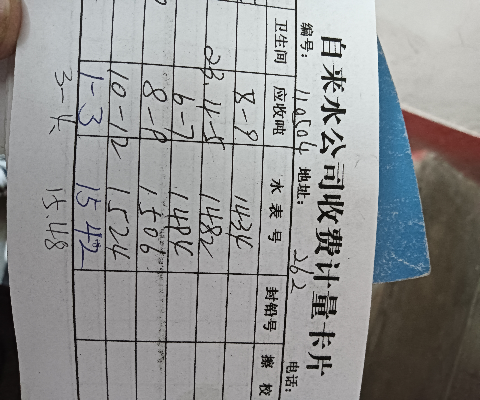 自来水公司收费计量卡片
编号: 110504 地址: 262 电话:
卫生间 应收吨 水表号 封铅号 擦校
8-9 1434
23.4-5 1482
6-7 1486
8-9 1506
10-12 1524
1-3 1542
3-4 15.48